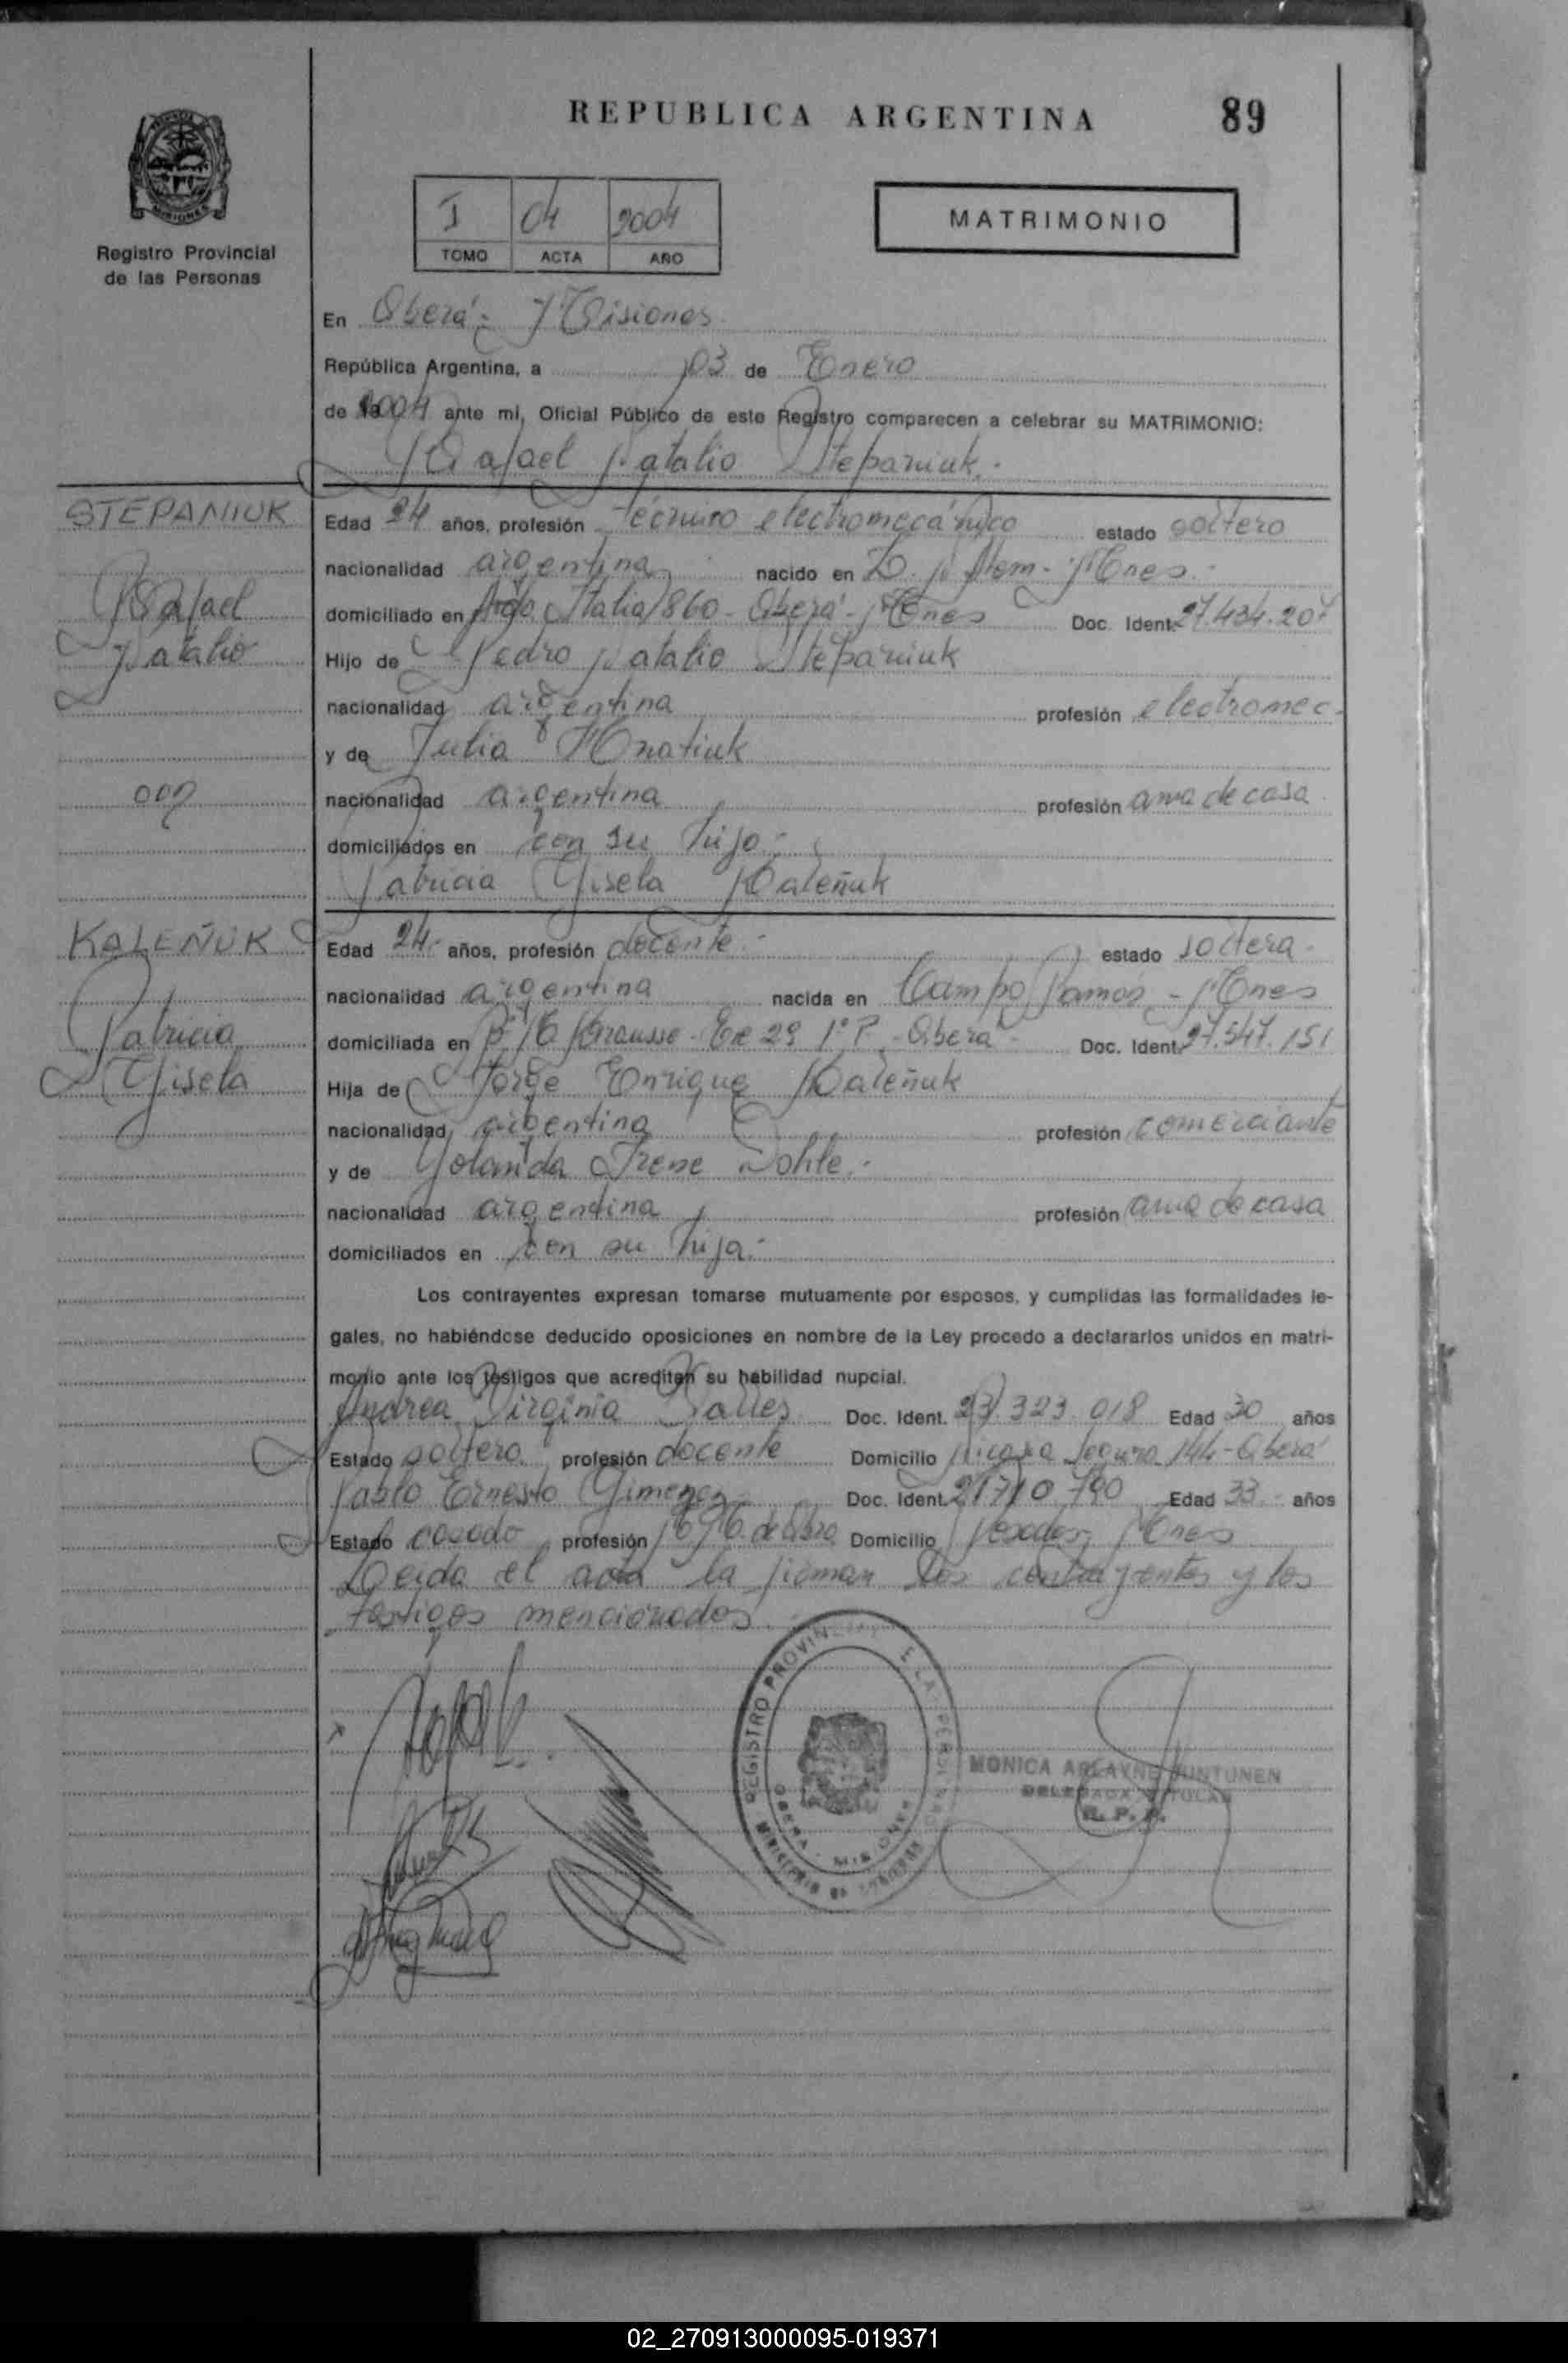 REPUBLICA ARGENTINA 89
Registro Provincial
de las Personas
I 04 2004
TOMO ACTA AÑO
MATRIMONIO
En Oberá - Misiones
República Argentina, a 03 de Enero
de 2004 ante mi, Oficial Público de este Registro comparecen a celebrar su MATRIMONIO:
Rafael Natalio Stepaniuk.-
STEPANIUK
Rafael
Natalio
007
Edad 24 años, profesión técnico electromecánico estado soltero
nacionalidad argentina nacido en L. N. Alem - Mnes.-
domiciliado en Avda. Italia 860 - Oberá - Mnes Doc. Ident. 27.434.207
Hijo de Pedro Natalio Stepaniuk
nacionalidad argentina profesión electromec.
y de Julia Hnatiuk
nacionalidad argentina profesión ama de casa
domiciliados en con su hijo.-
Patricia Gisela Kaleñuk
KALEÑUK
Patricia
Gisela
Edad 24.- años, profesión docente.- estado soltera.-
nacionalidad argentina nacida en Campo Ramón - Mnes
domiciliada en Krausse - 1° P - Oberá - Doc. Ident. 27.547.151
Hija de Jorge Enrique Kaleñuk
nacionalidad argentina profesión comerciante
y de Yolanda Irene Dohle.-
nacionalidad argentina profesión ama de casa
domiciliados en con su hija.-
Los contrayentes expresan tomarse mutuamente por esposos, y cumplidas las formalidades le-
gales, no habiéndose deducido oposiciones en nombre de la Ley procedo a declararlos unidos en matri-
monio ante los testigos que acreditan su habilidad nupcial.
Andrea Virginia Doc. Ident. 23.323.018 Edad 30 años
Estado soltera profesión docente Domicilio 144 - Oberá
Pablo Ernesto Gimenez Doc. Ident. 21710790 Edad 33.- años
Estado casado profesión M.M. de Obra Domicilio Posadas, Mnes
Leida el acta la firman los contrayentes y los
testigos mencionados.
REGISTRO PROVINCIAL DE LAS PERSONAS
OBERA - MISIONES
MINISTERIO DE GOBIERNO
MONICA ARLAYNE JUNTUNEN
DELEGADA TITULAR
R. P. P.
02_270913000095-019371